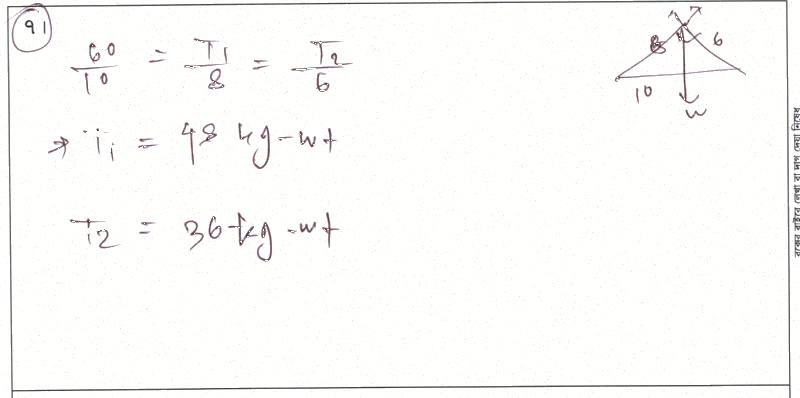 91
60/10 = T1/8 = T2/6
⇒ T1 = 48 kg-wt
T2 = 36 kg-wt
8 6
10
W
বক্সের বাইরে লেখা বা দাগ দেয়া নিষেধ